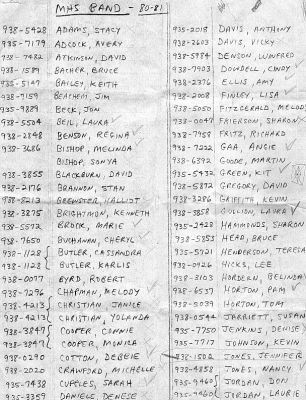 MHS BAND - 80-81
938-5428 ADAMS, STACY
935-7179 ADCOCK, AVERY
938-7482 ATKINSON, DAVID
938-1589 BACHER, BRUCE
935-5147 BAILEY, KEITH
938-7159 BEACHEM JIM
935-9889 BECK, JON
938-5504 BEIL, LAURA
938-2848 BENSON, REGINA
938-3686 BISHOP, MELINDA
BISHOP, SONYA
938-3855 BLACKBURN, DAVID
938-2176 BRANNON, STAN
938-8213 BREWSTER, HALLIOT
938-3875 BRIGHTMON, KENNETH
938-5572 BROCK, MARIE
938-7650 BUCHANAN, CHERYL
938-1128 BUTLER, CASSANDRA
938-1128 BUTLER, KARLIS
938-0077 BYRD, ROBERT
938-7296 CHAPMAN, MELODY
938-4213 CHRISTIAN, JANICE
938-4213 CHRISTIAN, YOLANDA
938-3847 COOPER, CONNIE
938-3847 COOPER, MONICA
938-0290 COTTON, DEBBIE
938-2020 CRAWFORD, MICHELLE
935-7438 CUPPLES, SARAH
935-3359 DANIELS, DENESE
935-2018 DAVIS, ANTHONY
938-2603 DAVIS, VICKY
938-5984 DENSON, WINFRED
938-7903 DOWDELL, CINDY
938-2376 ELLIS, AMY
938-2008 FINLEY, LISA
938-5050 FITZGERALD, MELOD
938-0047 FRIERSON, SHARON
938-7959 FRITZ, RICHARD
938-7222 GAA, ANGIE
938-6392 GOODE, MARTIN
935-5432 GREEN, KIT
938-5872 GREGORY, DAVID
938-3286 GRIFFITH, KEVIN
938-3858 GULLION, LAURA
935-2428 HAMMONDS, SHARON
938-5353 HEAD, BRUCE
935-5721 HENDERSON, TERESA
938-0926 HICKS, LEE
938-3103 HORDERN, BELINDA
938-6537 HORTON, PAM
938-5039 HORTON, TOM
938-0544 JARRIETT, SUSAN
935-7750 JENKINS, DENISE
935-7717 JOHNSON, KEVIN
938-1502 JONES, JENNIFER
938-4858 JONES, NANCY
935-9460 JORDAN, DON
935-9460 JORDAN, LAURIE